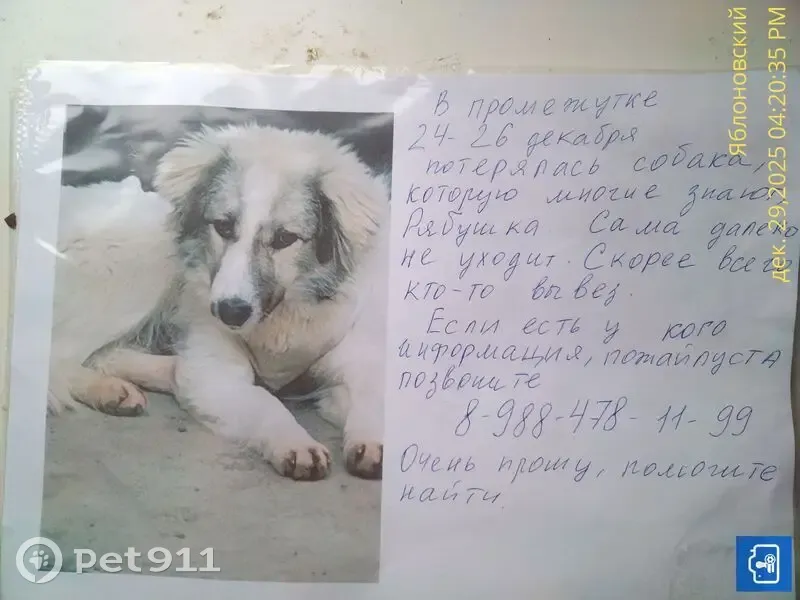 В промежутке
24-26 декабря
потерялась собака,
которую многие знают,
Рябушка Сама далеко
не уходит. Скорее всего
кто-то вывез.
Если есть у кого
информация, пожалуйста
позвоните
8-988-478-11-99
Очень прошу, помогите
найти
Яблоновский
дек. 29,2025 04:20:35 PM
pet911